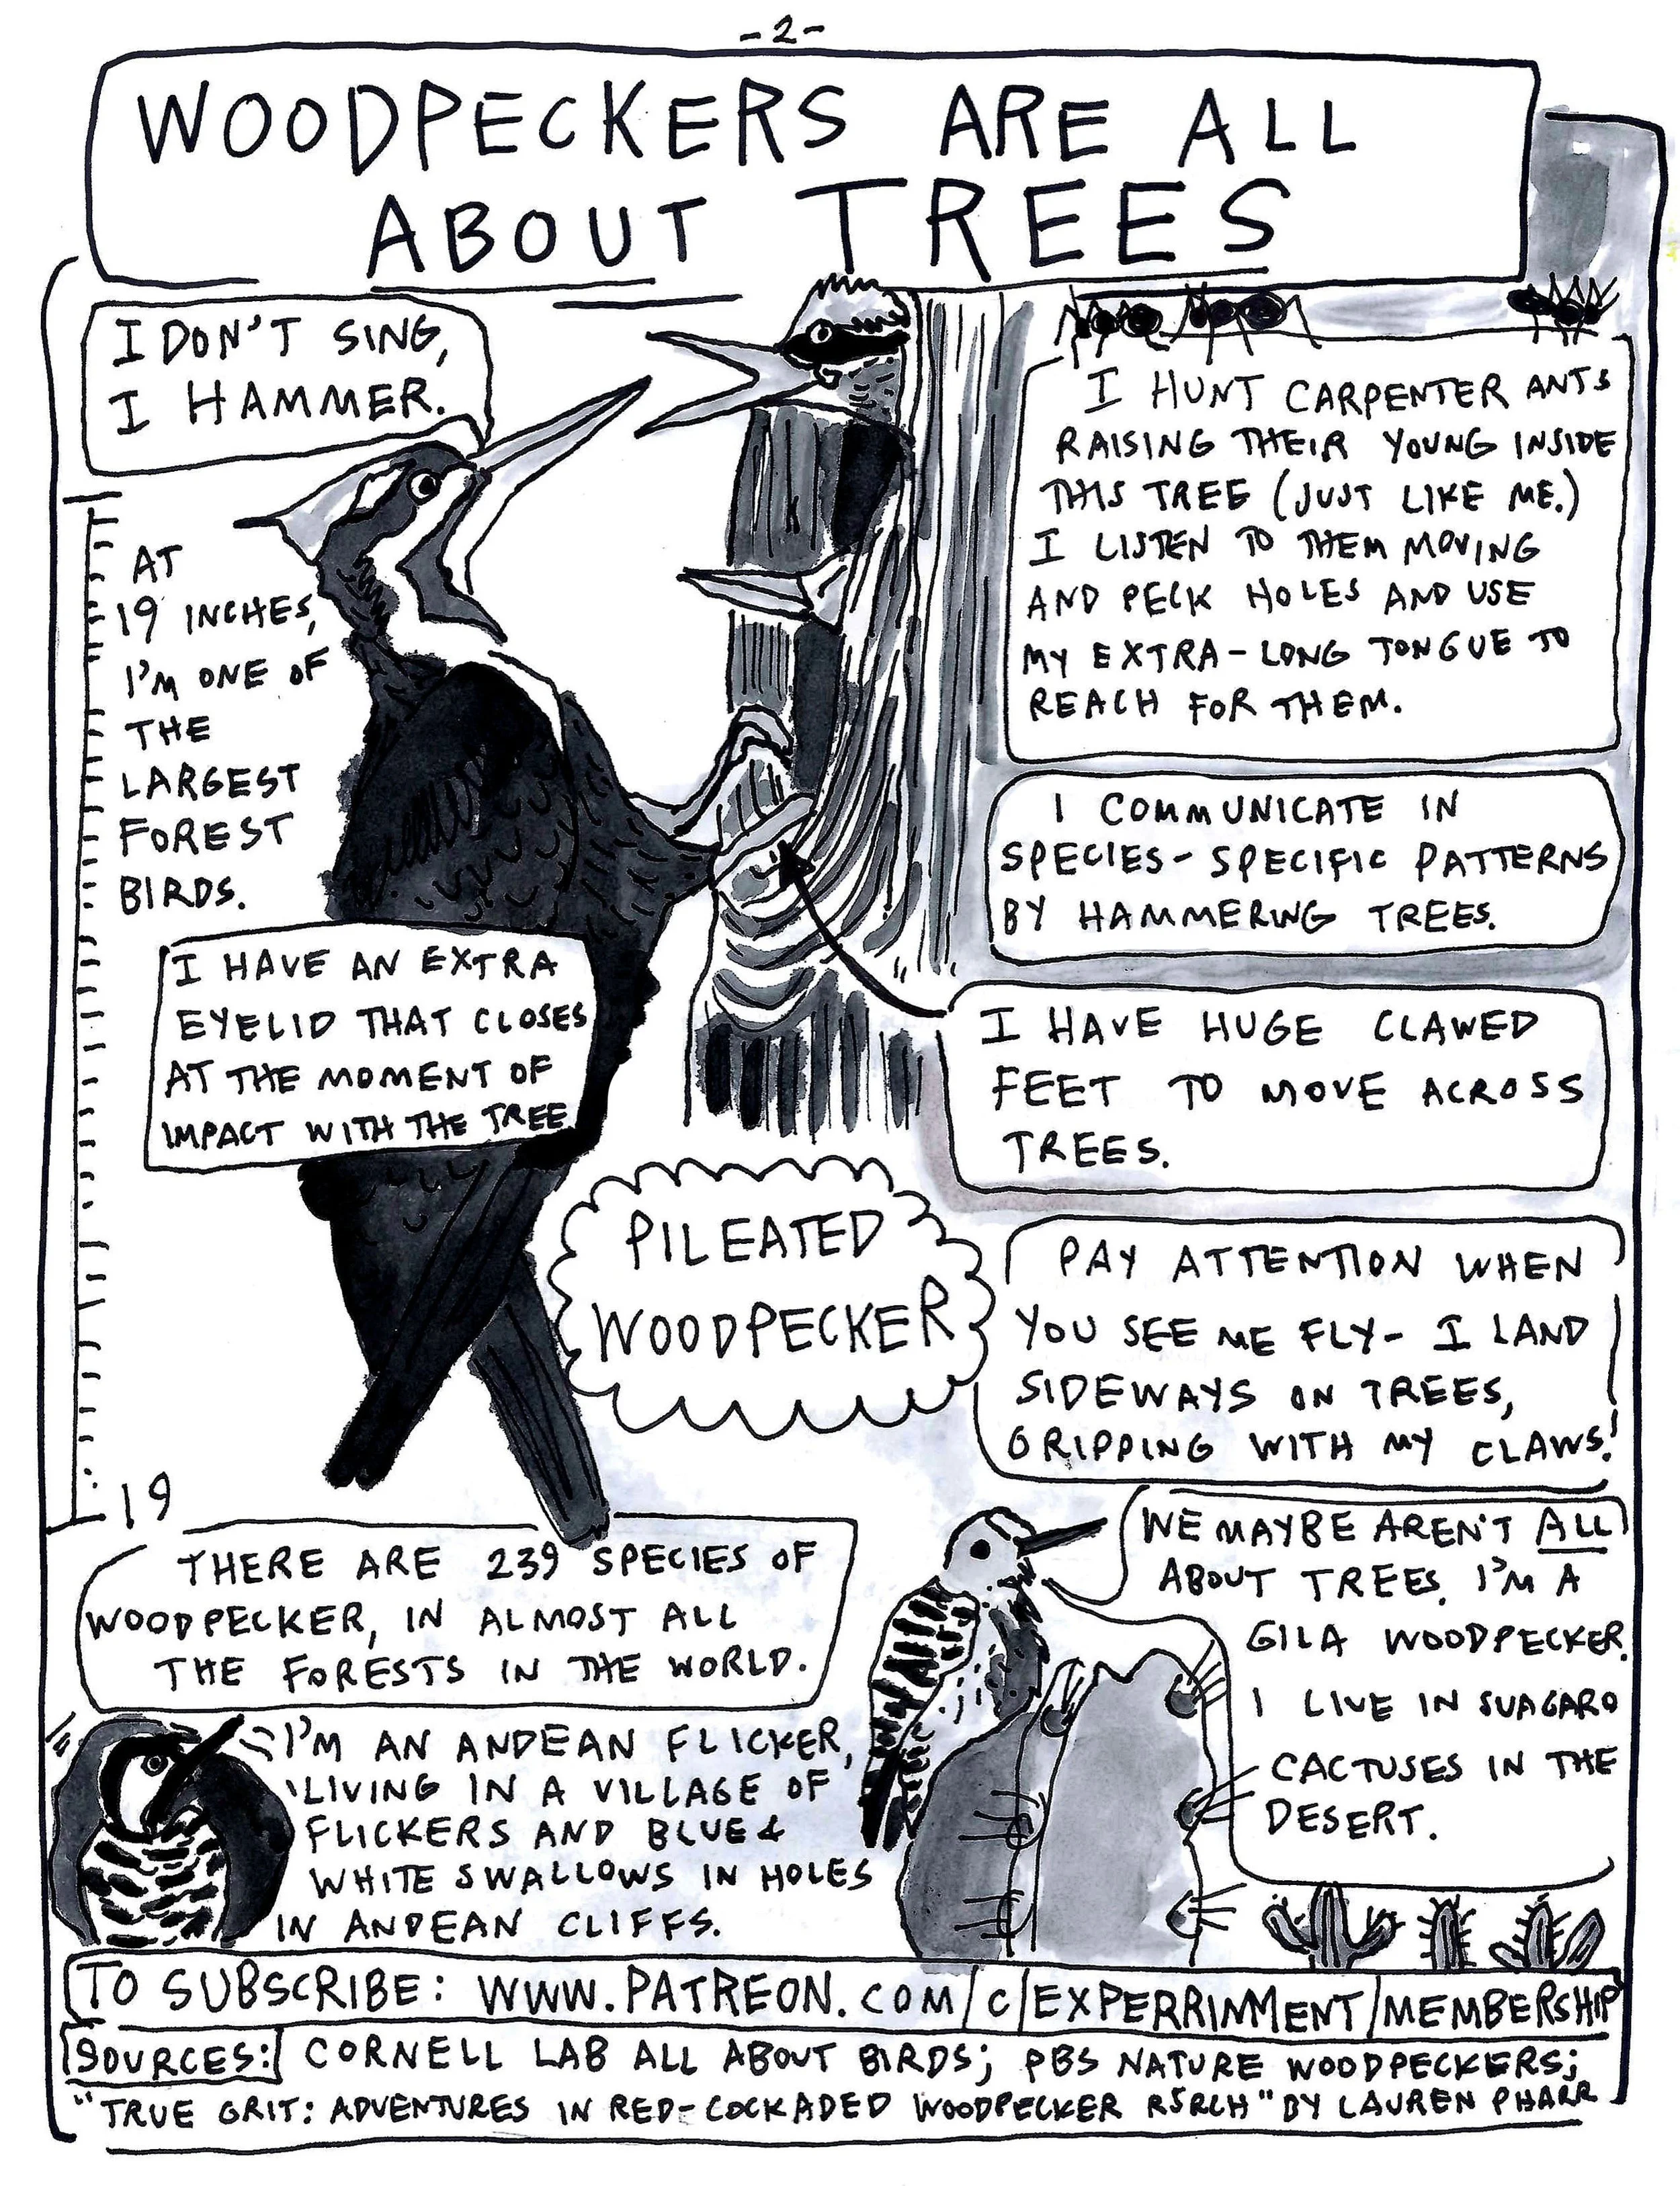 -2-
WOODPECKERS ARE ALL
ABOUT TREES
I DON'T SING,
I HAMMER.
AT
19 INCHES,
I'M ONE OF
THE
LARGEST
FOREST
BIRDS.
I HAVE AN EXTRA
EYELID THAT CLOSES
AT THE MOMENT OF
IMPACT WITH THE TREE
19
I HUNT CARPENTER ANTS
RAISING THEIR YOUNG INSIDE
THIS TREE (JUST LIKE ME.)
I LISTEN TO THEM MOVING
AND PECK HOLES AND USE
MY EXTRA-LONG TONGUE TO
REACH FOR THEM.
I COMMUNICATE IN
SPECIES-SPECIFIC PATTERNS
BY HAMMERING TREES.
I HAVE HUGE CLAWED
FEET TO MOVE ACROSS
TREES.
PILEATED
WOODPECKER
PAY ATTENTION WHEN
YOU SEE ME FLY- I LAND
SIDEWAYS ON TREES,
GRIPPING WITH MY CLAWS!
THERE ARE 239 SPECIES OF
WOODPECKER, IN ALMOST ALL
THE FORESTS IN THE WORLD.
WE MAYBE AREN'T ALL
ABOUT TREES. I'M A
GILA WOODPECKER.
I LIVE IN SUAGARO
CACTUSES IN THE
DESERT.
I'M AN ANDEAN FLICKER,
LIVING IN A VILLAGE OF
FLICKERS AND BLUE &
WHITE SWALLOWS IN HOLES
IN ANDEAN CLIFFS.
TO SUBSCRIBE: WWW.PATREON.COM/C/EXPERRINMENT/MEMBERSHIP
SOURCES: CORNELL LAB ALL ABOUT BIRDS; PBS NATURE WOODPECKERS;
"TRUE GRIT: ADVENTURES IN RED-COCKADED WOODPECKER RSRCH" BY LAUREN PHARR